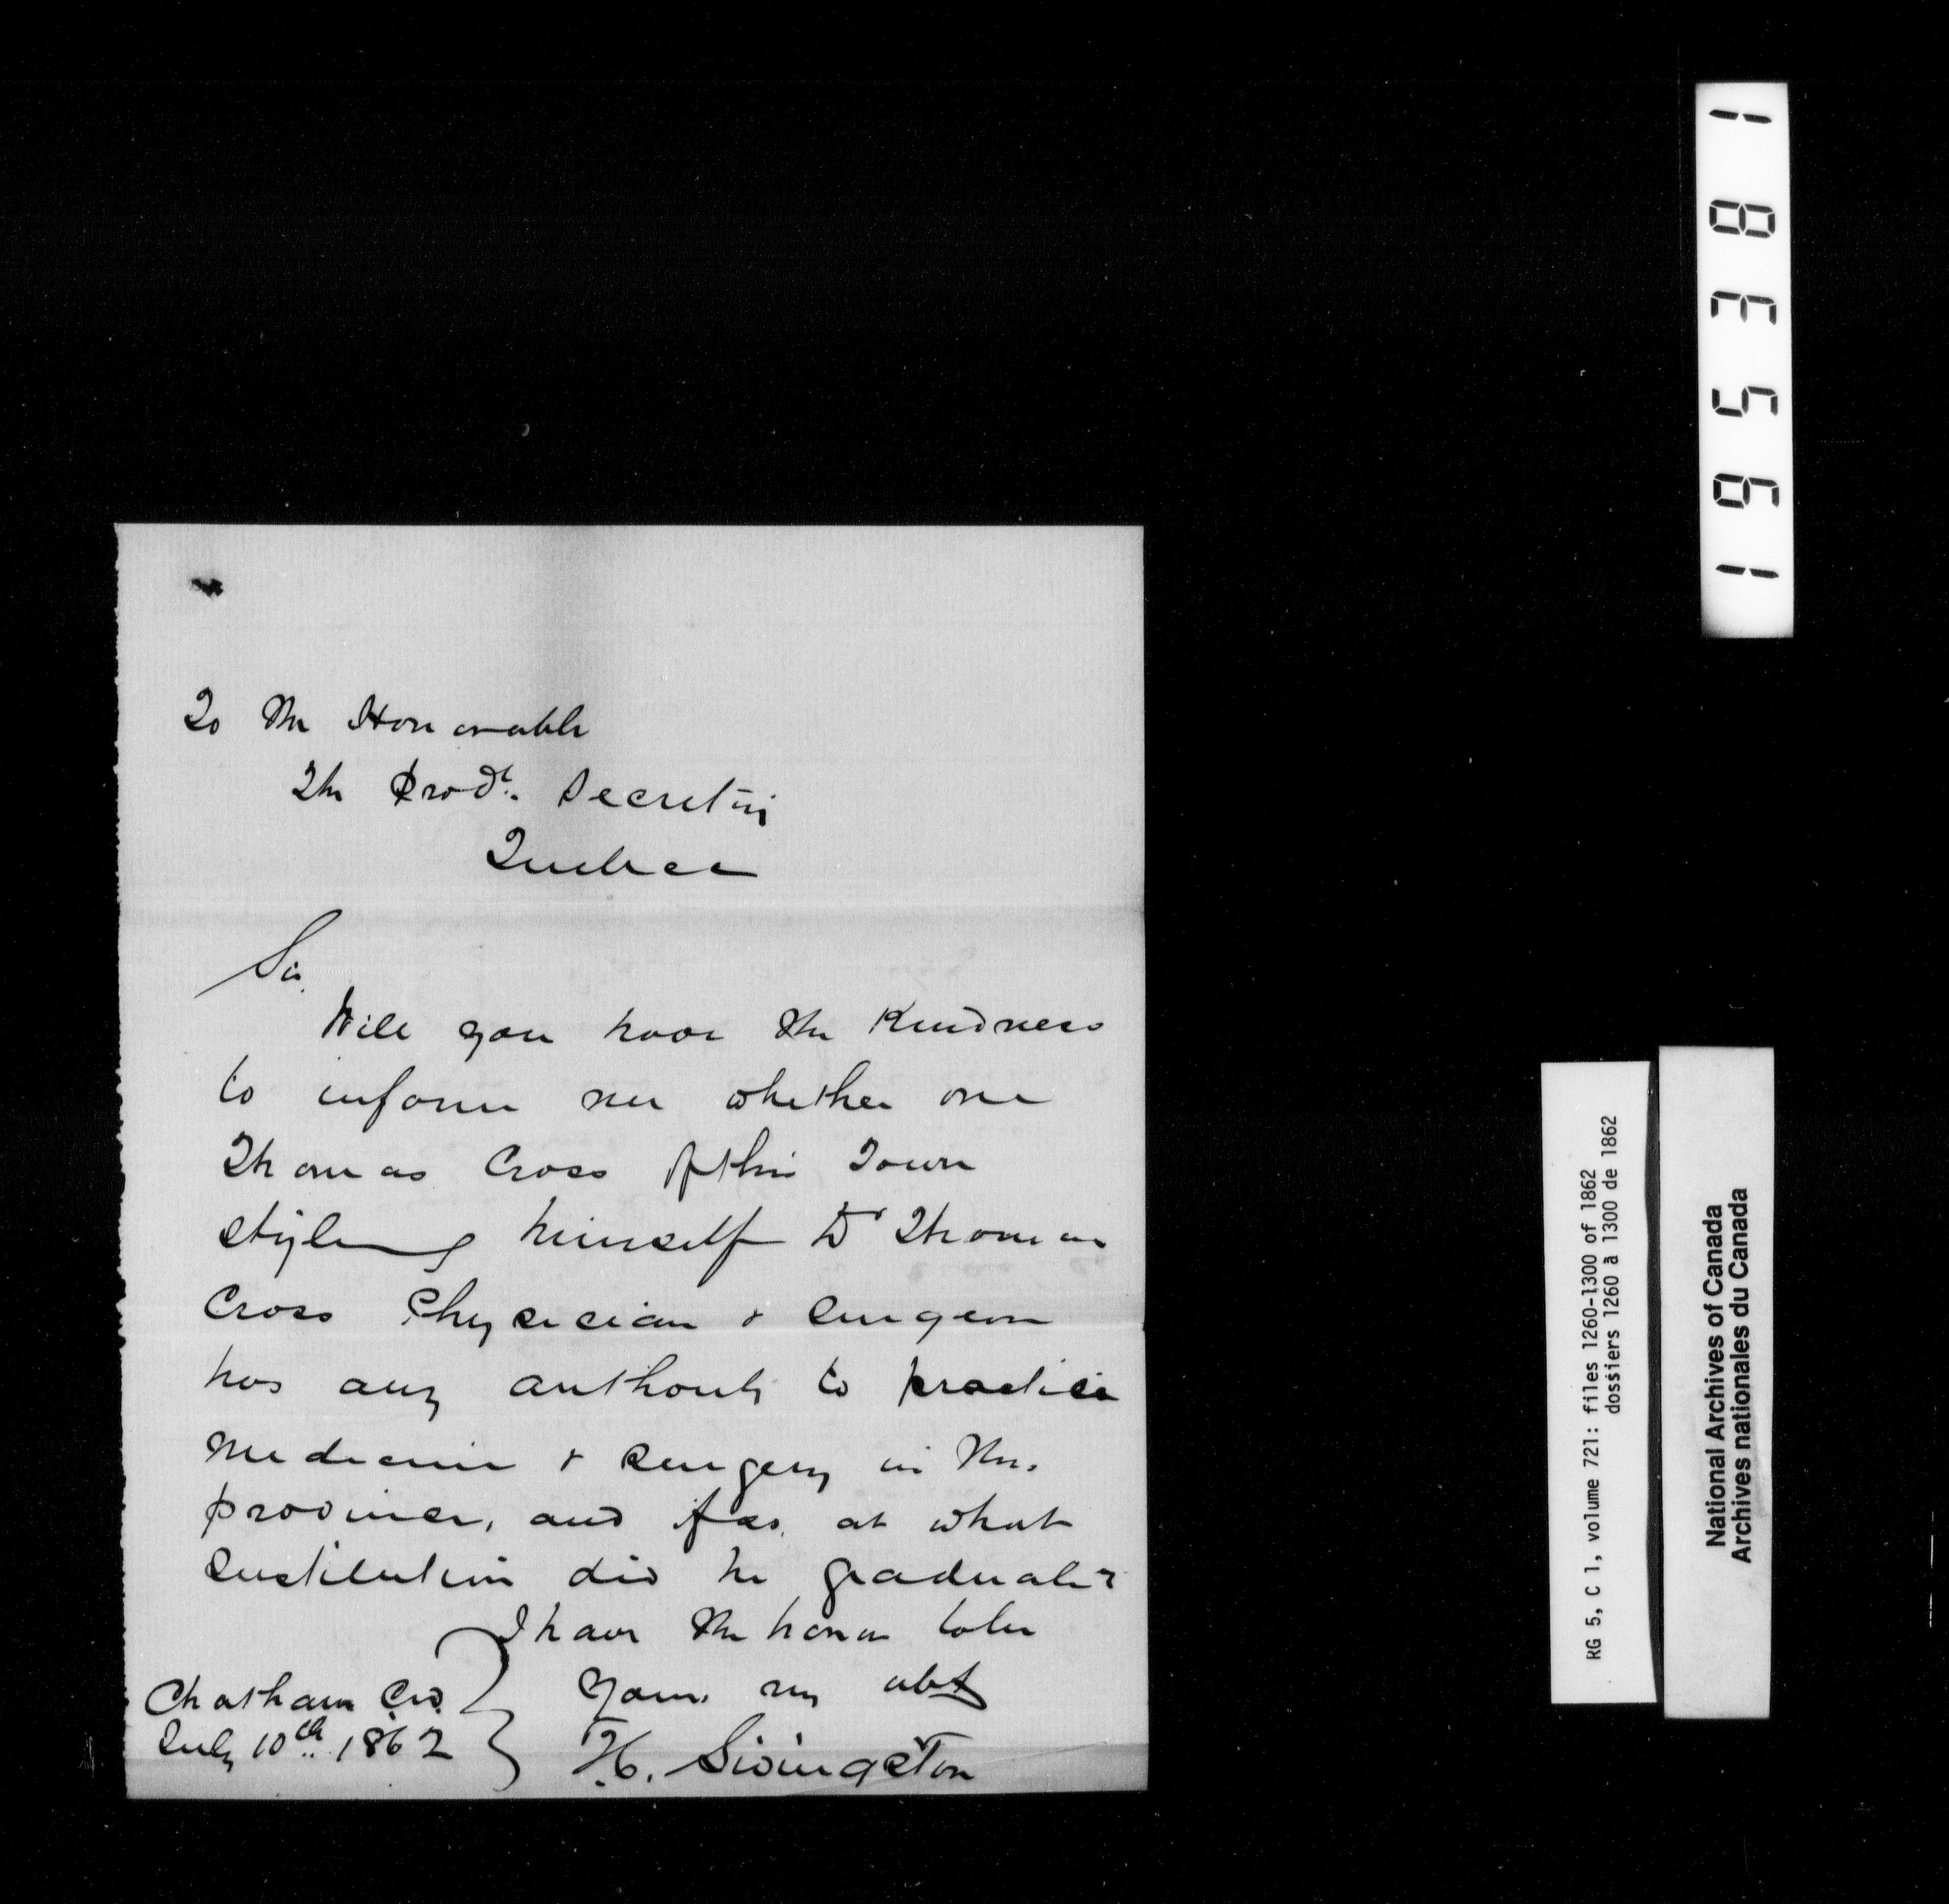 To the Honorable
The Provl. Secretary
Quebec
Sir,
Will you have the Kindness
to inform me whether one
Thomas Cross of this Town
styling himself Dr Thomas
Cross Physician & Surgeon
has any authority to practice
Medicine & Surgery in the
province, and if so, at what
institution did he graduate?
I have the honor to be
Yours my obt
H. Livingston
Chatham C.W.
July 10th 1862
183561
RG 5, C 1, volume 721: files 1260-1300 of 1862
dossiers 1260 à 1300 de 1862
National Archives of Canada
Archives nationales du Canada